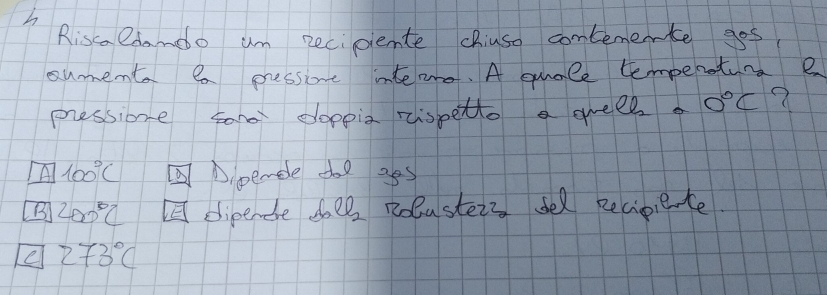 4
Riscaldando un recipiente chiuso contenente gas,
aumenta la pressione interna. A quale temperatura la
pressione sarà doppia rispetto a quella a 0°C?
A 100°C D Dipende dal gas
B 200°C E dipende dalla robustezza del recipiente.
C 273°C